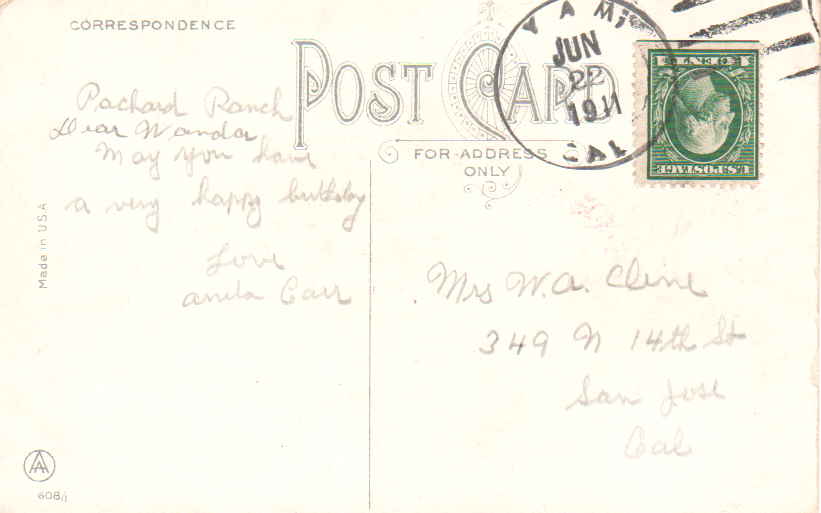 CORRESPONDENCE
POST CARD
FOR ADDRESS
ONLY
YAMI
JUN
22
1911
CAL
U.S. POSTAGE
Packard Ranch
Dear Wanda
May you have
a very happy birthday
Love
Anita Carr
Mrs W.A. Cline
349 N 14th St
San Jose
Cal
Made in U.S.A
AA
608/1